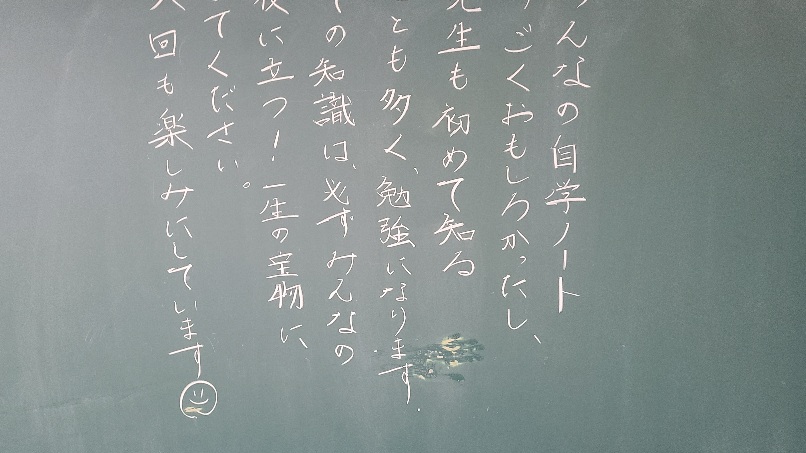 んなの自学ノート
ごくおもしろかったし、
先生も初めて知る
とも多く、勉強になります.
の知識は、必ずみんなの
に立つ！一生の宝物に、
てください。
回も楽しみにしています